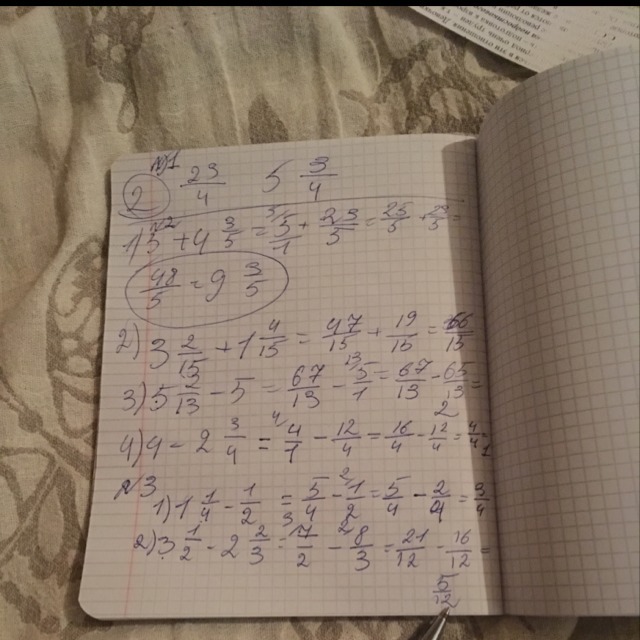 №1
② 23/4 5 3/4
№2
1) 5 + 4 3/5 = 5/1 + 23/5 = 25/5 + 23/5 =
48/5 = 9 3/5
2) 3 2/15 + 1 4/15 = 47/15 + 19/15 = 66/15
3) 5 2/13 - 5 = 67/13 - 5/1 = 67/13 - 65/13 =
2
4) 4 - 2 3/4 = 4/1 - 12/4 = 16/4 - 12/4 = 4/4
№3
1) 1 1/4 - 1/2 = 5/4 - 1/2 = 5/4 - 2/4 = 3/4
2) 3 1/2 - 2 2/3 = 7/2 - 8/3 = 21/12 - 16/12 =
5/12